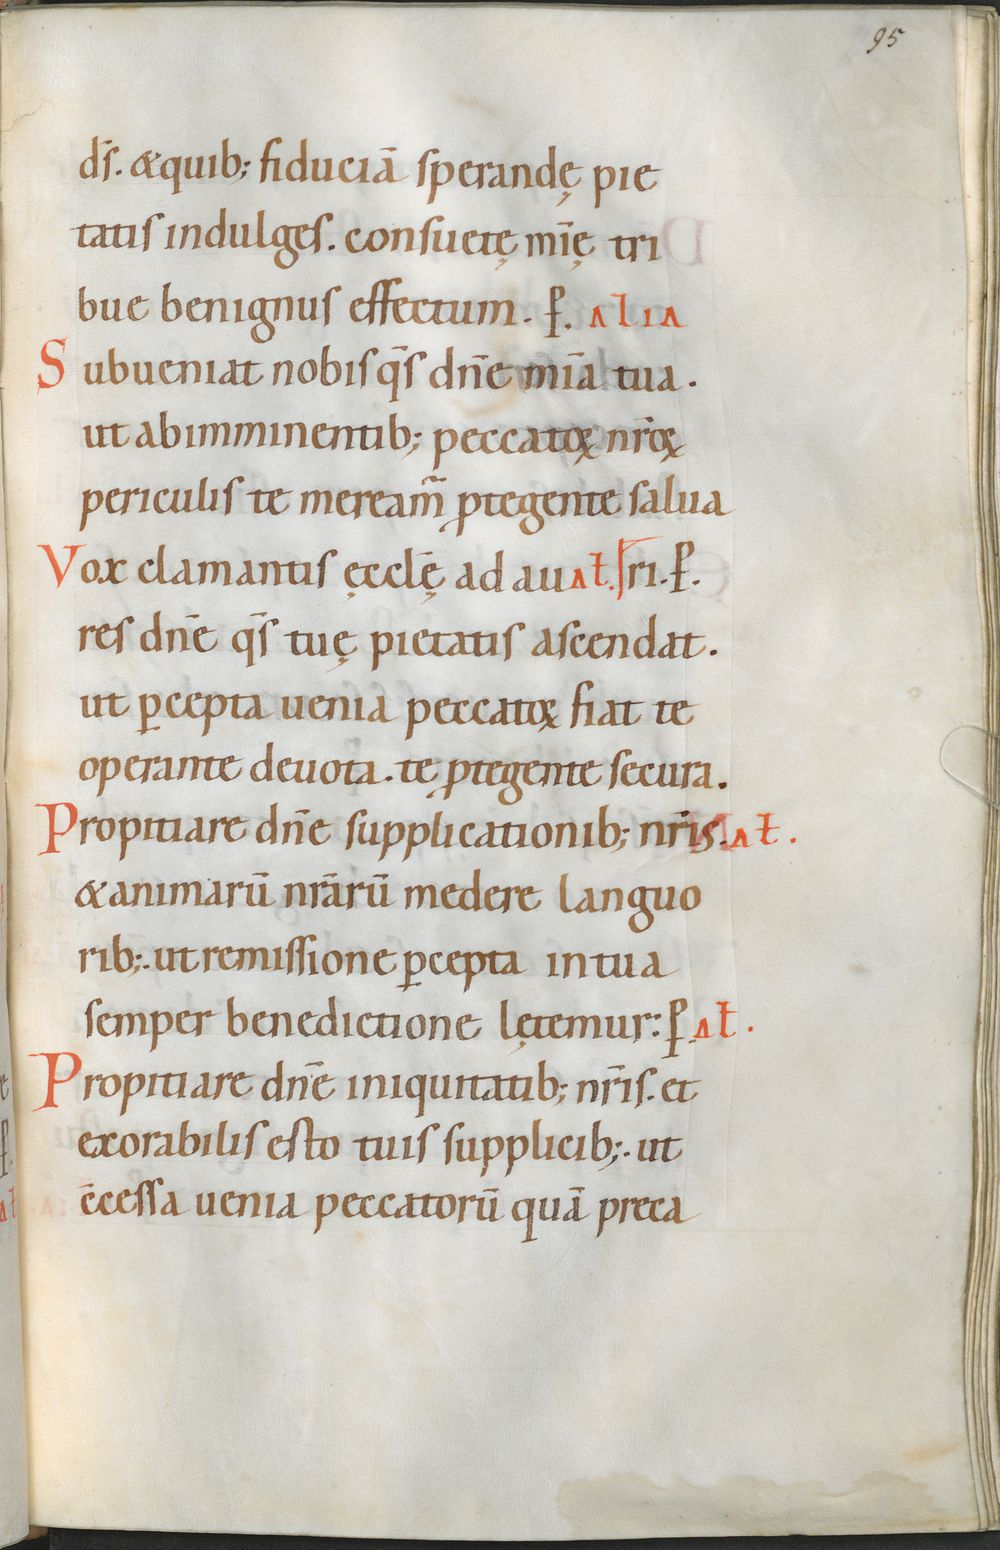 95
d̄s. &quib; fiduciā sperandę pie
tatis indulges. consuetę mīę tri
bue benignus effectum. ꝑ. ALIA
Subueniat nobis q̄s dn̄e mīa tua.
ut abimminentib; peccatoꝝ nr̄oꝝ
periculis te meream̄ ꝓtegente salua
Vox clamantis ęcclę̄ ad au ri. ꝑ. Aꝉ.
res dn̄e q̄s tuę pietatis ascendat.
ut ꝑcepta uenia peccatoꝝ fiat te
operante deuota. te ꝓtegente secura.
Propitiare dn̄e supplicationib; nr̄is. Aꝉ.
&animarū nr̄arū medere languo
rib;. ut remissione ꝑcepta in tua
semper benedictione lętemur: ꝑ Aꝉ.
Propitiare dn̄e iniquitatib; nr̄is. et
exorabilis esto tuis supplicib;. ut
c̄cessa uenia peccatorū quā preca